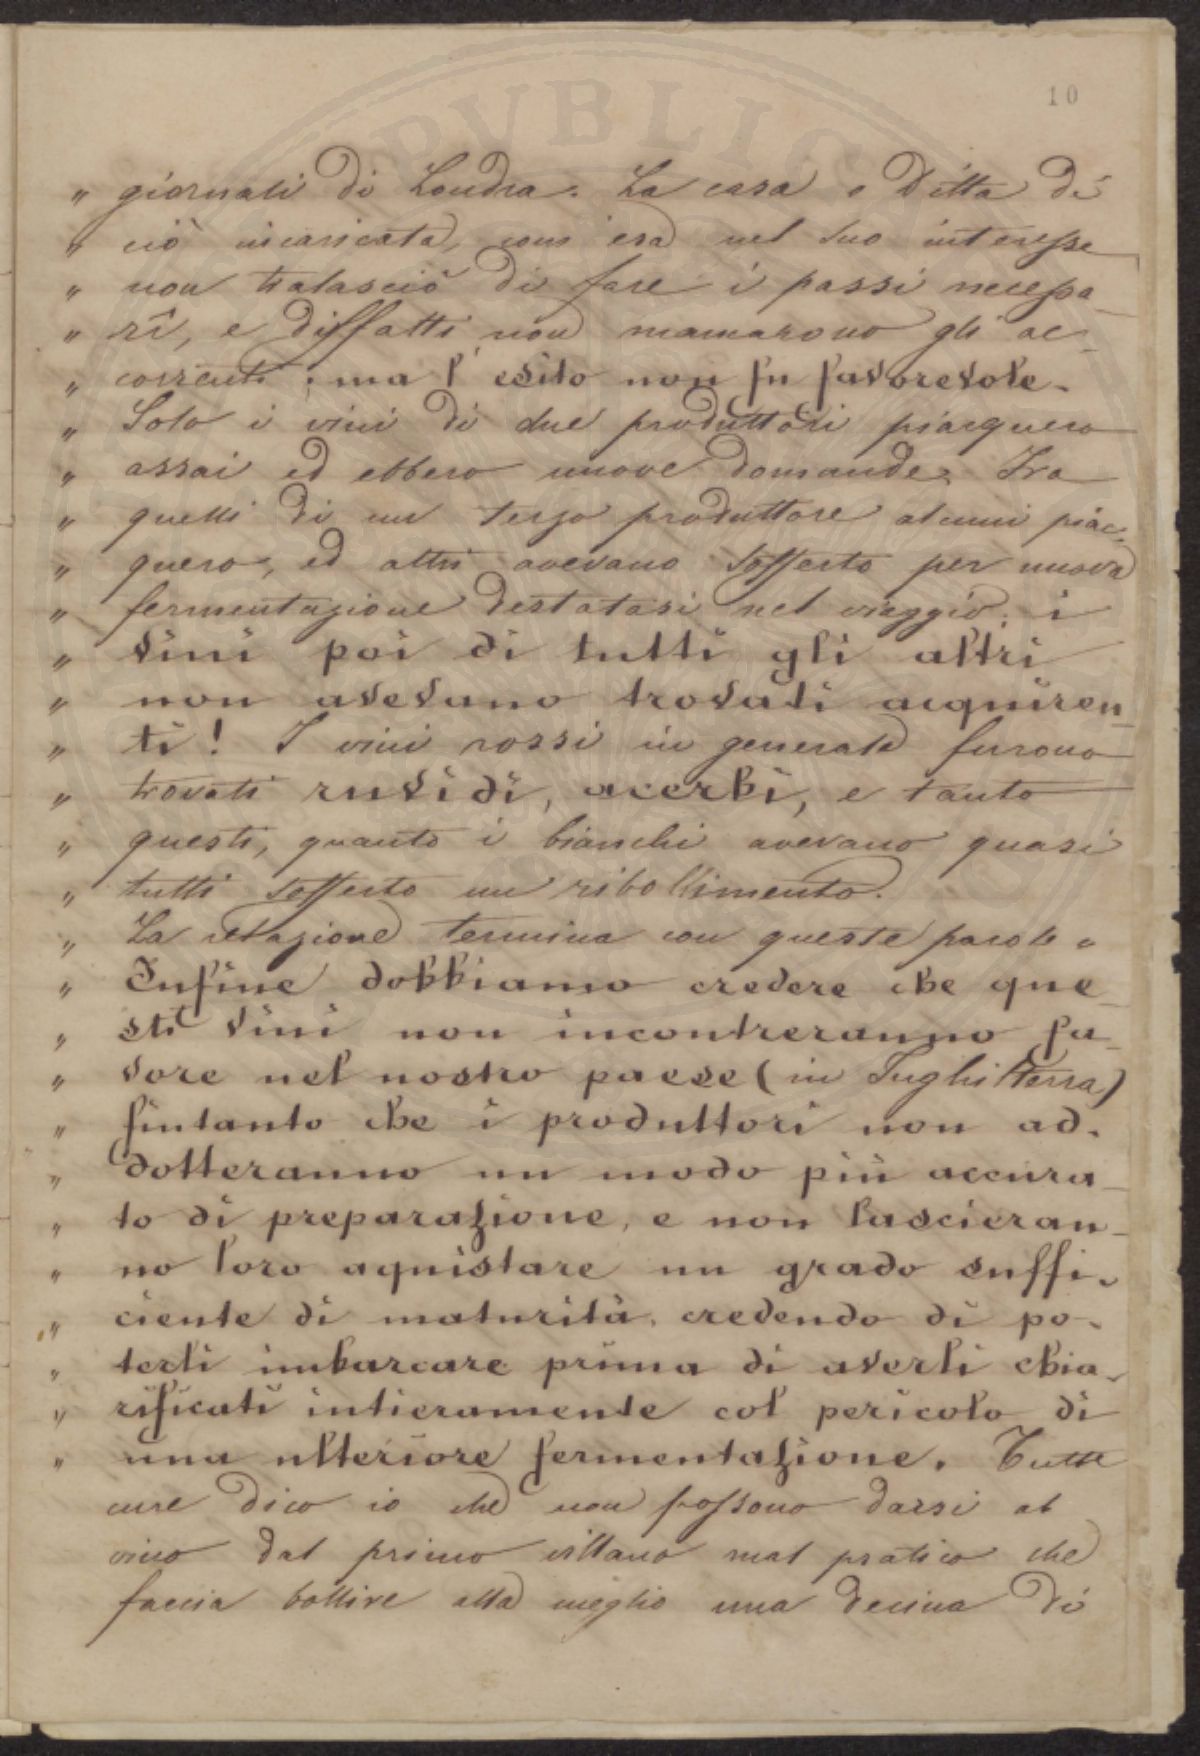 10
„ giornali di Londra. La casa o Ditta di
„ ciò incaricata, com'era nel suo interesse
„ non tralasciò di fare i passi necessa-
„ rî, e diffatti non mancarono gli ac-
„ correnti; ma l'esito non fu favorevole.
„ Solo i vini di due produttori piacquero
„ assai ed ebbero nuove domande. Tra
„ quelli di un terzo produttore alcuni piac-
„ quero, ed altri avevano sofferto per nuova
„ fermentazione destatasi nel viaggio; i
„ vini poi di tutti gli altri
„ non avevano trovati acquiren-
„ ti! I vini rossi in generale furono
„ trovati ruvidi, acerbi, e tanto
„ questi, quanto i bianchi avevano quasi
„ tutti sofferto un ribollimento.
„ La relazione termina con queste parole =
„ Infine dobbiamo credere che que-
„ sti vini non incontreranno fa-
„ vore nel nostro paese (in Inghilterra)
„ fintanto che i produttori non ad-
„ dotteranno un modo più accura-
„ to di preparazione, e non lascieran-
„ no loro aquistare un grado suffi-
„ ciente di maturità, credendo di po-
„ terli imbarcare prima di averli chia-
„ rificati intieramente col pericolo di
„ una ulteriore fermentazione. Tutte
cure dico io che non possono darsi al
vino dal primo villano mal pratico che
faccia bollire alla meglio una decina di
PVBLICA